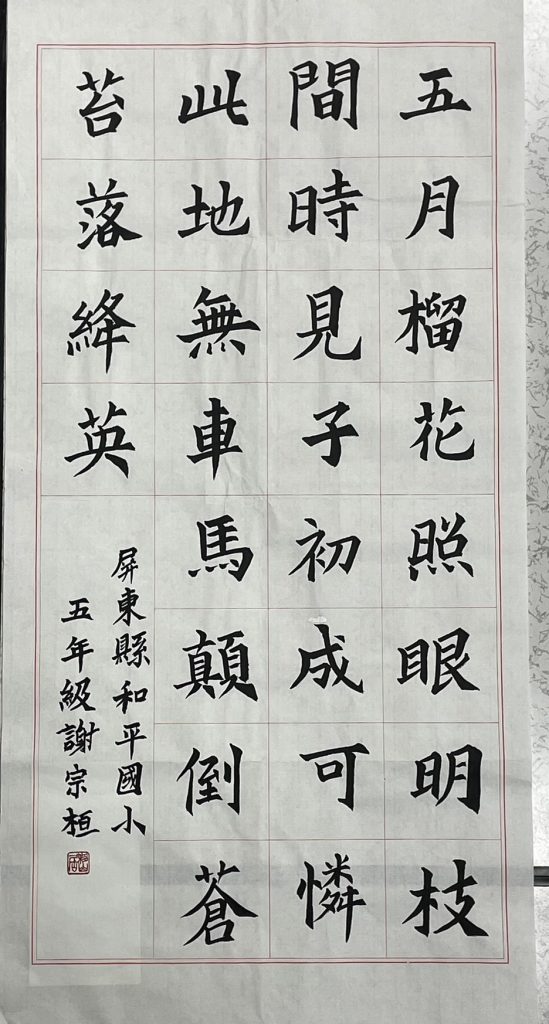 五月榴花照眼明枝
間時見子初成可憐
此地無車馬顛倒蒼
苔落絳英
屏東縣和平國小
五年級謝宗桓